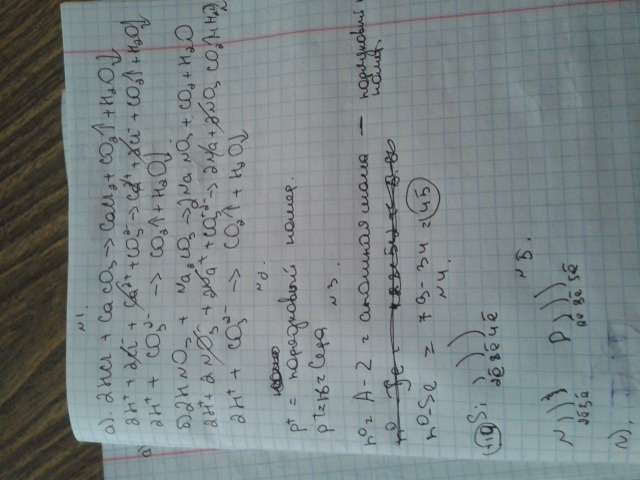 N1.
а). 2HCl + CaCO3 → CaCl2 + CO2↑ + H2O
2H⁺ + 2Cl⁻ + Ca²⁺ + CO3²⁻ → Ca²⁺ + 2Cl⁻ + CO2↑ + H2O
2H⁺ + CO3²⁻ → CO2↑ + H2O
б) 2HNO3 + Na2CO3 → 2NaNO3 + CO2 + H2O
2H + 2NO3⁻ + 2Na⁺ + CO3²⁻ → 2Na + 2NO3 CO2↑ + H2O
2H⁺ + CO3²⁻ → CO2↑ + H2O
N2.
p⁺ = порядковый номер.
p⁺ = 16 = Сера
N3.
n⁰ = A - Z = атомная масса — порядковый номер.
n⁰ - Se = 79 - 34 = 45
N4.
Si ) ) )
2ē 8ē 4ē
N5.
N ) ) P ) ) )
2ē 5ē 2ē 8ē 5ē
N).